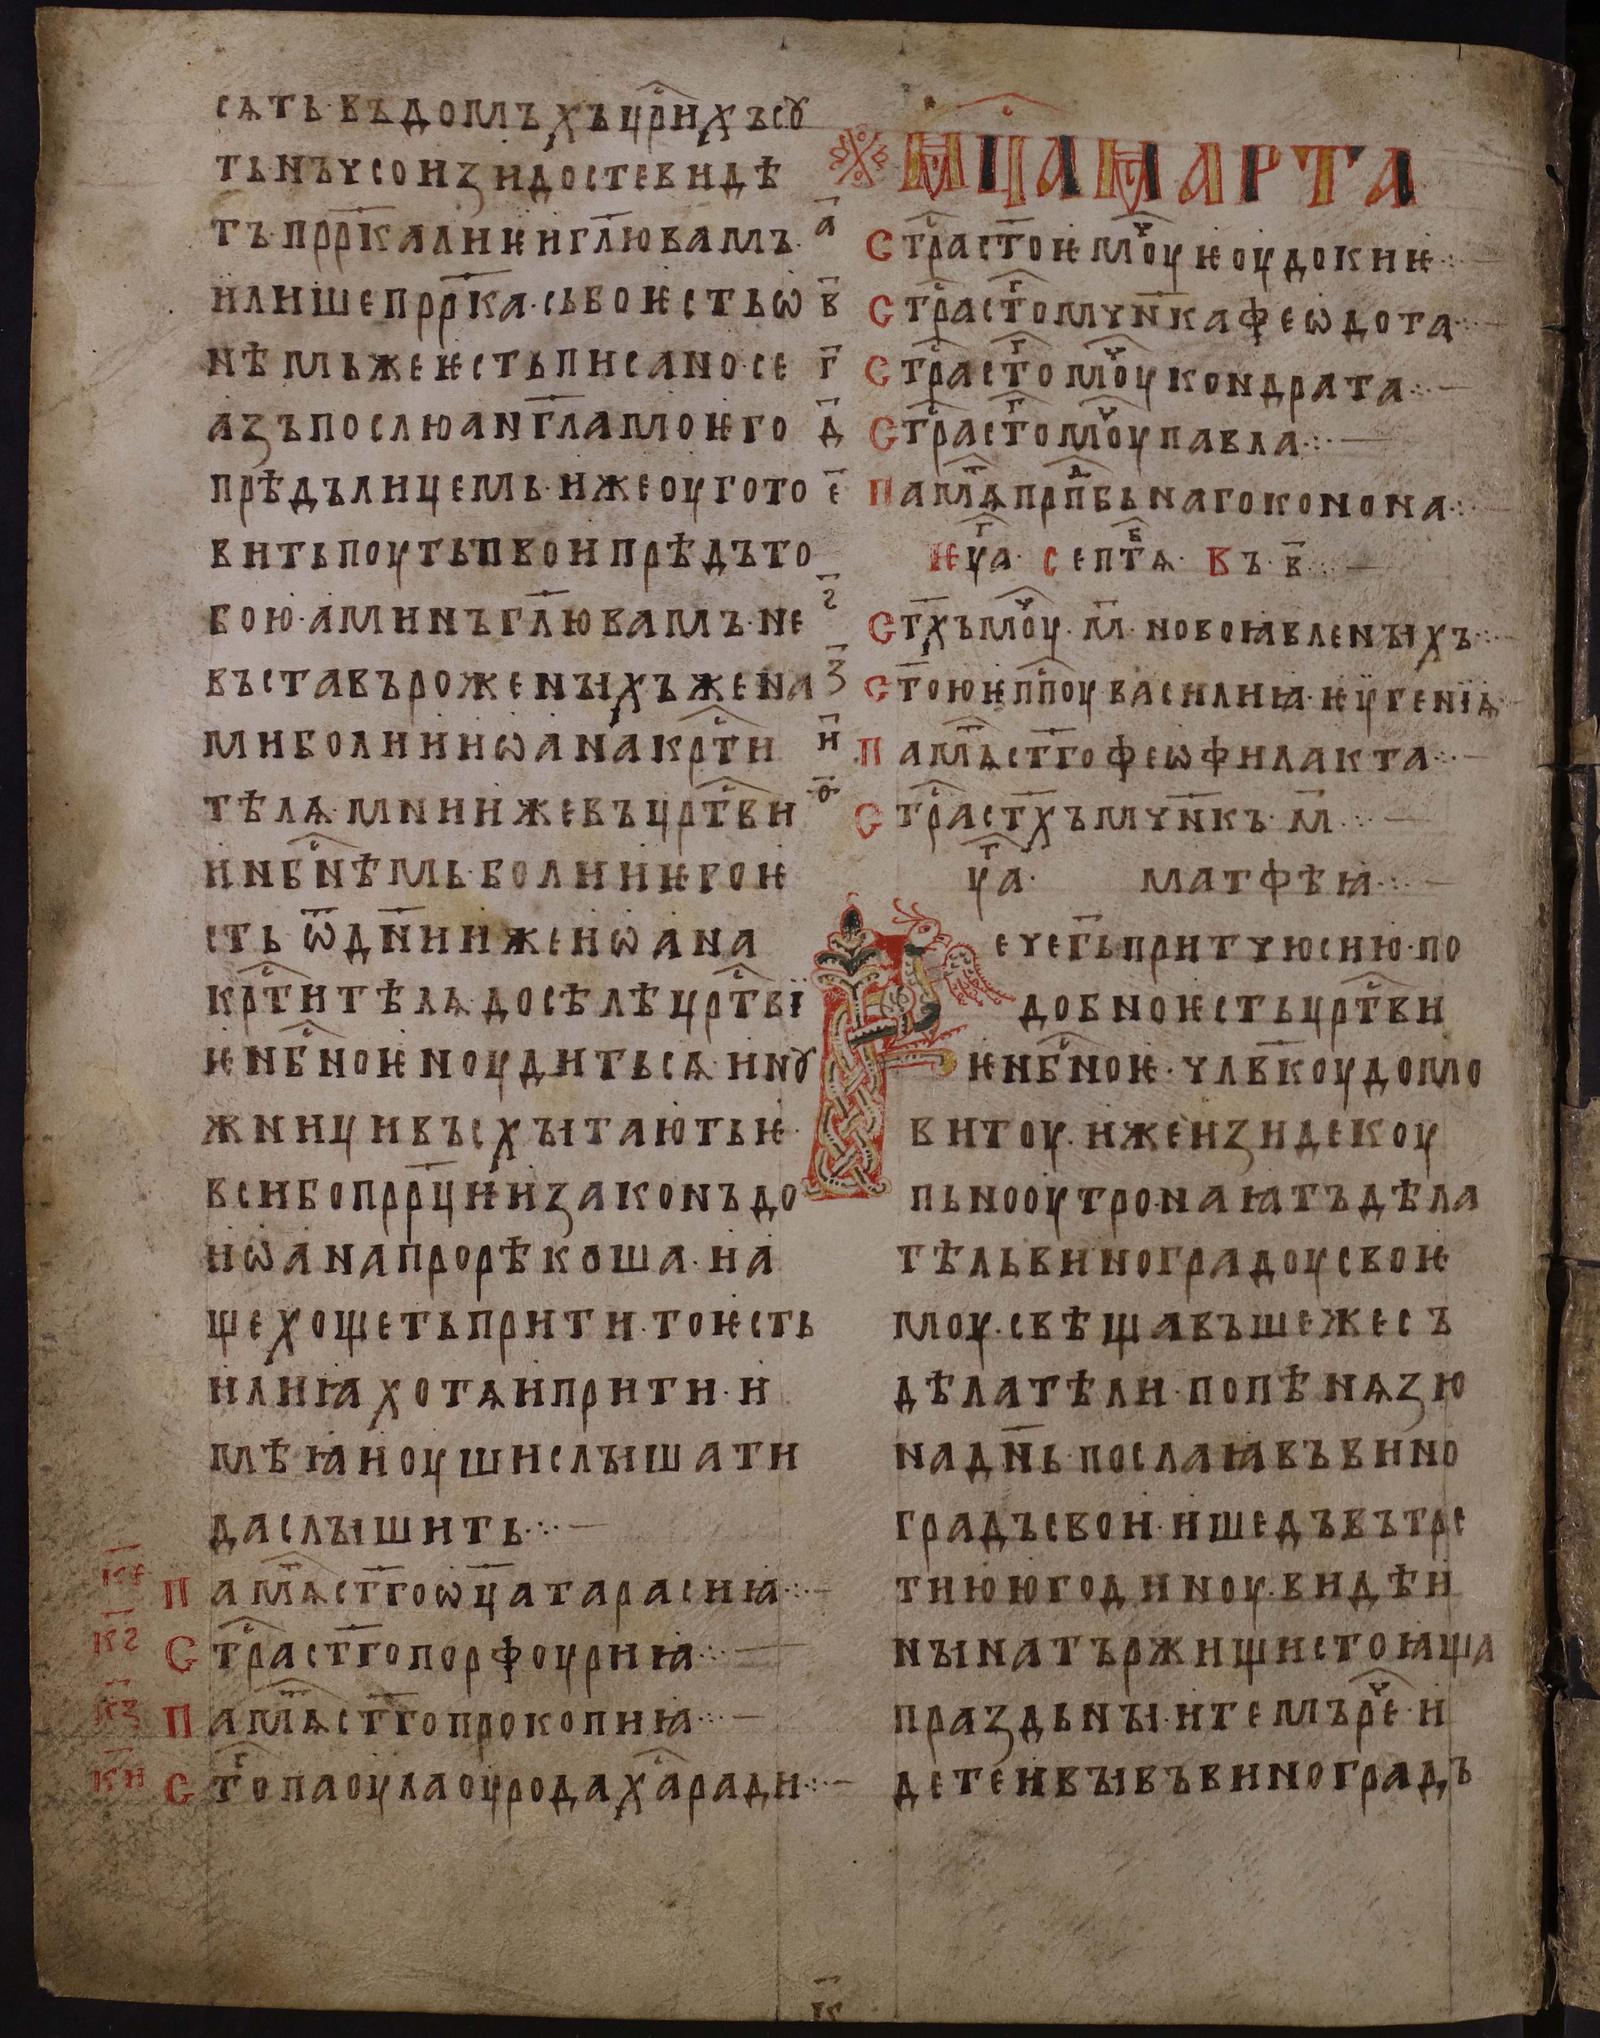 сѧть·въдомъхъцр҇нхъсꙋ
тьнъчсоизидостевидѣ
тъ·прр҃калиѥиглю҃вамъ·
илишепрр҃ка·сьбоѥстьѡ
нѣмьжеѥстьписано·се
азъпослюанг҃ламоѥго
прѣдълицемь·ижеоугото
витьпоутьтвоипрѣдъто
бою·аминъгл҃ювамъ·не
въставъроженыхъжена
миболииѡанакрт҇и
тѣлѧ·мнииижевъцрт҇ви
инб҇нѣмь·болииѥгоѥ
сть ѿдн҃иижеиѡана
крт҇итѣлѧ·досѣлѣцрт҇вї
ѥнб҇ноѥноудитьсѧ·инꙋ
жницивъсхытаютьѥ·
всибопрр҃циизаконъдо
иѡанапрорѣкоша·на
щехощетьприти·тоѥсть
илиꙗхотѧиприти·и
мѣꙗиоушислышати
даслышить·:·—
к҃е Пам҇ѧст҃гоѡц҃атарасиꙗ·:·—
к҃ѕ Стр҇аст҃гопорфоуриꙗ·:·—
к҃з Пам҇ѧст҃гопрокопиꙗ·:·—
к҃и Ст҇опаоулаоуродахар҇ади·:·—
мц҃амарта
а҃ Стр҇аст҃оѥмоу҇ѥоудокиѥ·:·—
в҃ Стр҇аст҇омчн҃кафеѡдота·:·—
г҃ Стр҇аст҇омоу҇кондрата·:·—
д҃ Стр҇аст҇омоу҇павла·:·—
е҃ Пам҇ѧпрп҇бьнагоконона·:·
Ѥуа҇· септ҇ѧ· въ·в҃·:·—
ѕ҃ Ст҃хъмоу҇·м҃·новоꙗвленыхъ·:·
з҃ Ст҃оюѥпп҇оувасилиꙗ·ѥѵгениꙗ
и҃ Пам҇ѧст҃гофеѡфилакта·:·—
ѳ҃ Стр҇аст҃хъмчн҃къ·м҃·:·—
уа҇· матфѣꙗ·:·—
Речег҃ьпритчюсию·по
добноѥстьцрт҇ви
ѥнб҇ноѥ·члв҃коудомо
витоу·ижеизидекоу
пьнооутро·наꙗтъдѣла
тѣльвиноградоусвоѥ
моу·свѣщавъшежесъ
дѣлатѣли·попѣнѧзю
надн҃ь·послаꙗвъвино
градъсвои·ишедъвътре
тиююгодиноу·видѣи
ныинатържищистоꙗща
праздьны·итемърч҇е·и
детеивывъвиноградъ